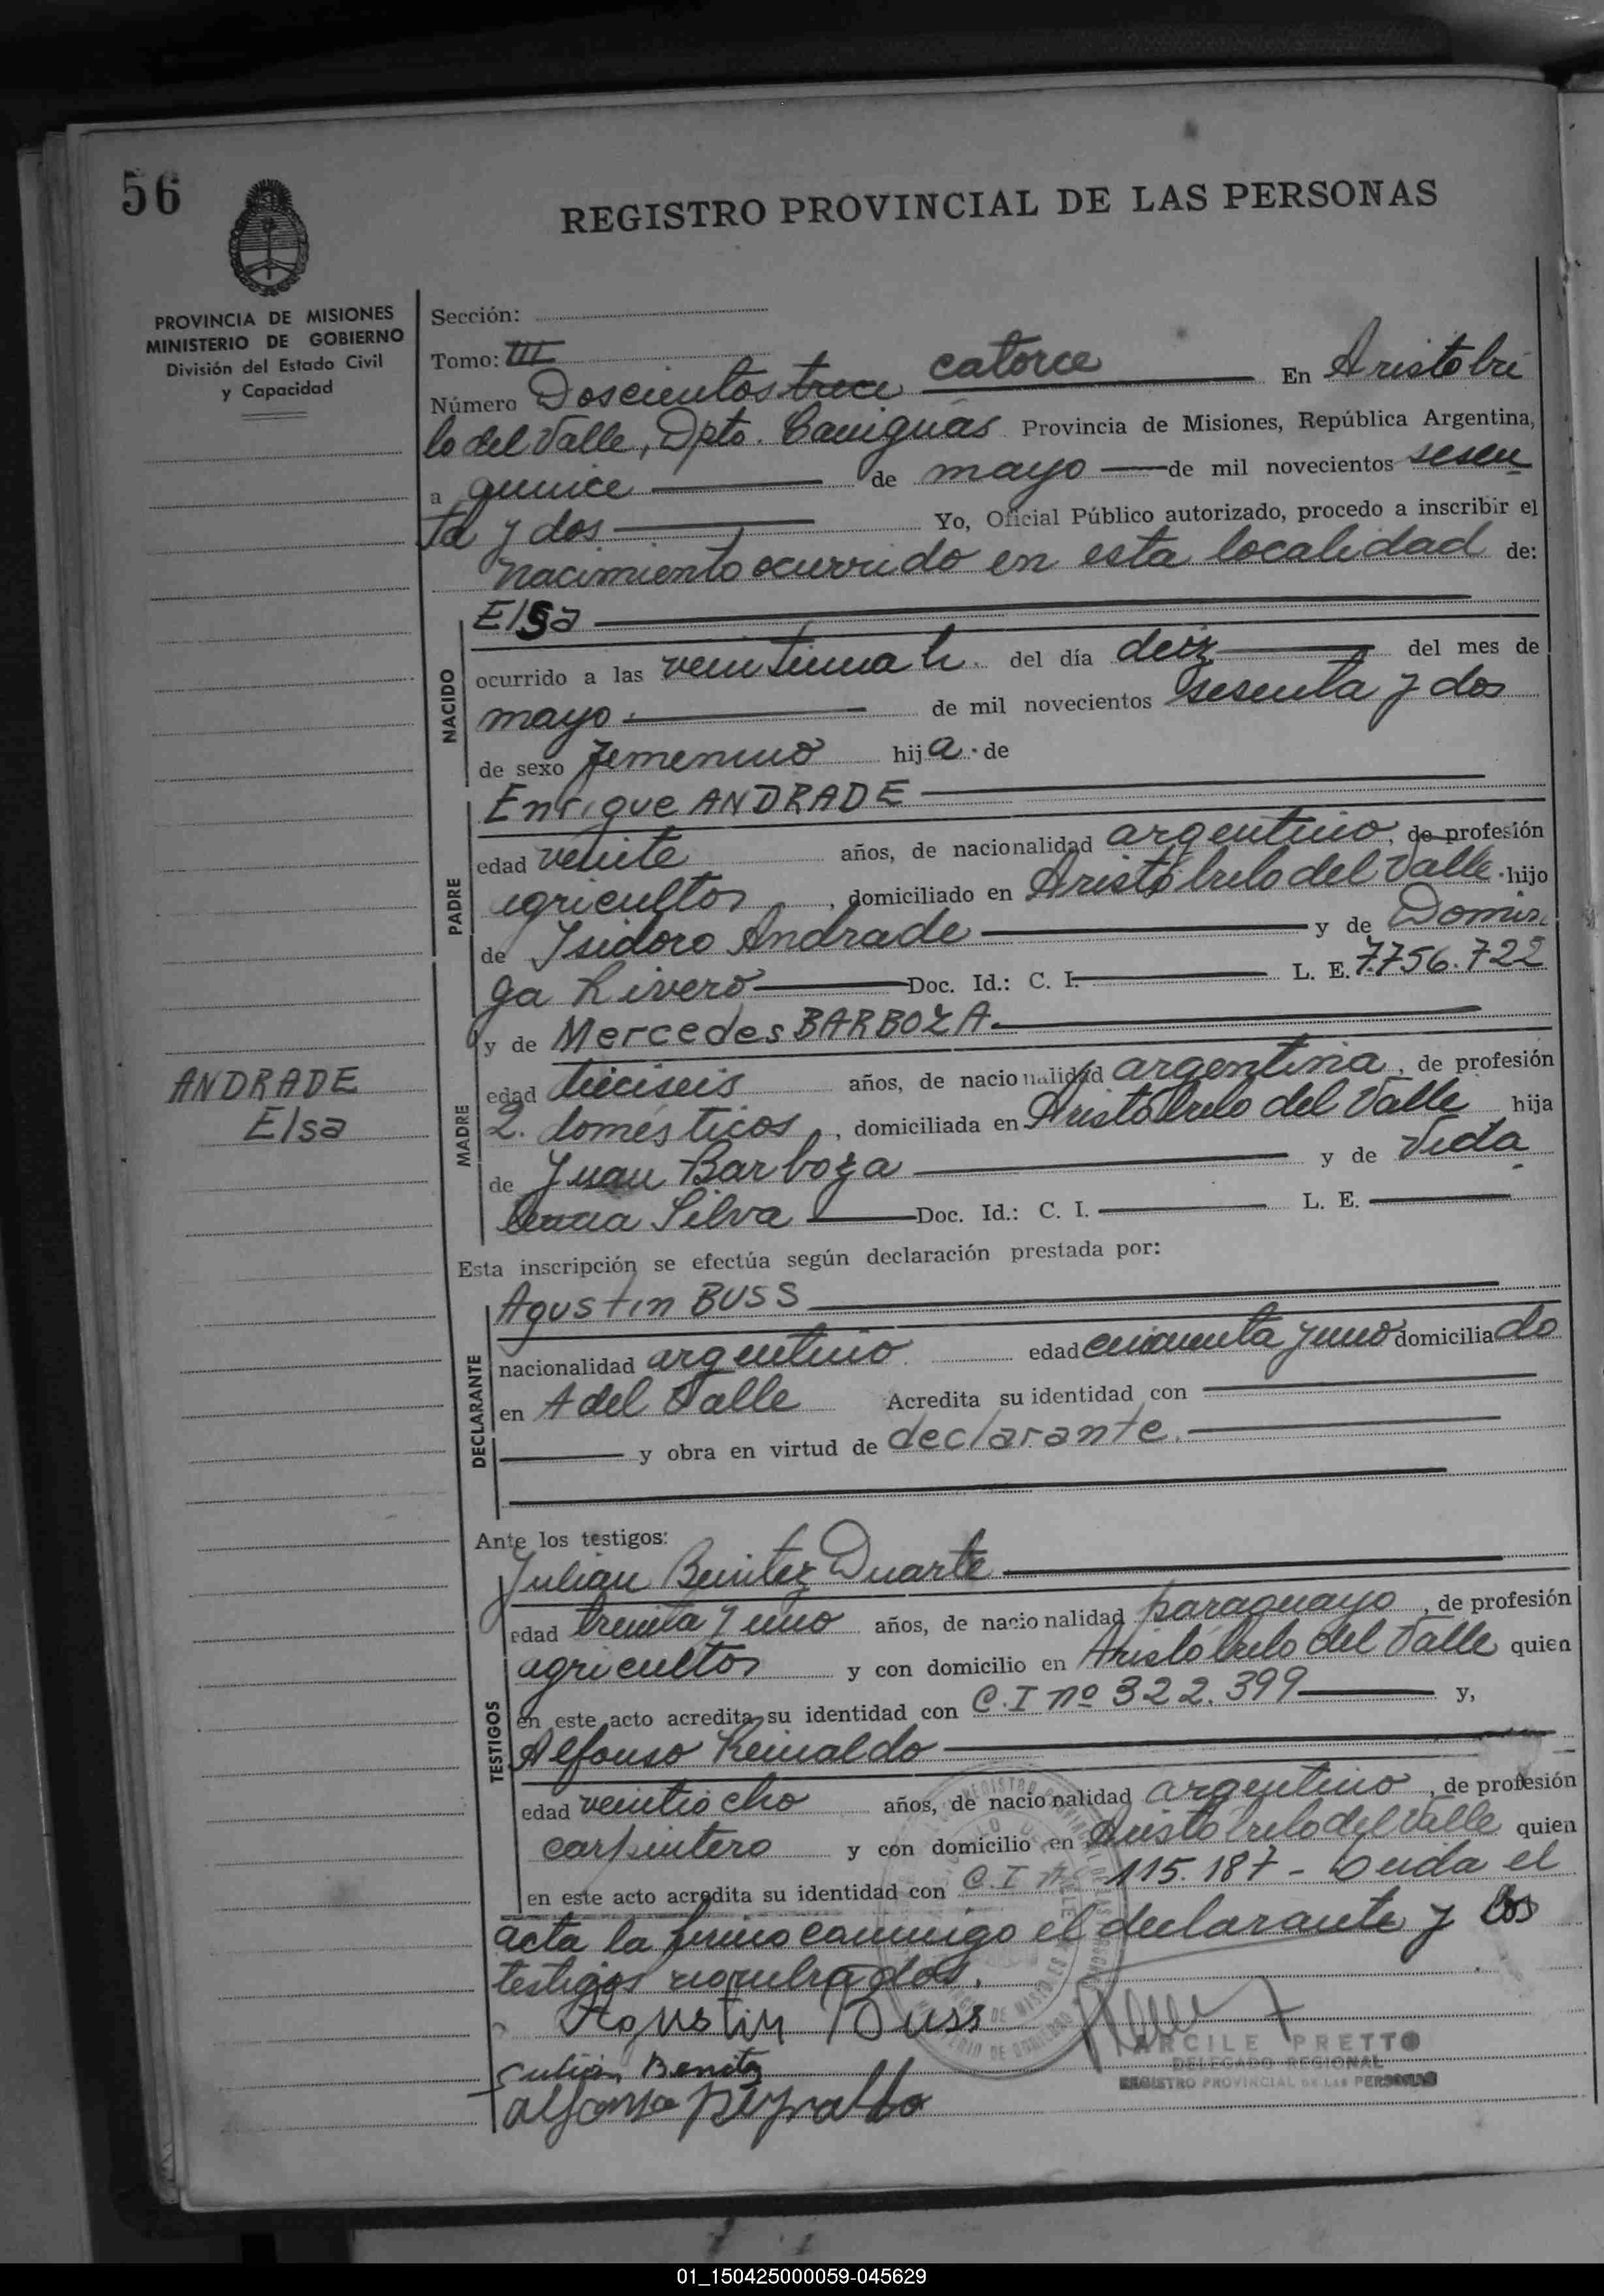 56
REGISTRO PROVINCIAL DE LAS PERSONAS
PROVINCIA DE MISIONES
MINISTERIO DE GOBIERNO
División del Estado Civil
y Capacidad
Sección:
Tomo: III
Número Doscientos trece catorce En Aristóbu
lo del Valle, Dpto. Cainguás Provincia de Misiones, República Argentina,
a quince de mayo de mil novecientos sesen
ta y dos Yo, Oficial Público autorizado, procedo a inscribir el
nacimiento ocurrido en esta localidad de:
NACIDO
Elsa
ocurrido a las veintiuna h. del día deiz del mes de
mayo de mil novecientos sesenta y dos
de sexo femenino hija de
PADRE
Enrique ANDRADE
edad veinte años, de nacionalidad argentino, de profesión
agricultor, domiciliado en Aristóbulo del Valle hijo
de Isidoro Andrade y de Domin
ga Rivero Doc. Id.: C. I. L. E. 7.756.722
y de Mercedes BARBOZA
ANDRADE
Elsa
MADRE
edad dieciseis años, de nacionalidad argentina, de profesión
Q. domésticos, domiciliada en Aristóbulo del Valle hija
de Juan Barboza y de Vida
Silva Doc. Id.: C. I. L. E.
Esta inscripción se efectúa según declaración prestada por:
DECLARANTE
Agustin BUSS
nacionalidad argentino edad cincuenta y uno domiciliado
en A del Valle Acredita su identidad con
y obra en virtud de declarante.
Ante los testigos:
TESTIGOS
Julian Benitez Duarte
edad treinta y uno años, de nacionalidad paraguayo, de profesión
agricultor y con domicilio en Aristóbulo del Valle quien
en este acto acredita su identidad con C.I nº 322.399 y,
Alfonso Reinaldo
edad veintiocho años, de nacionalidad argentino, de profesión
carpintero y con domicilio en Aristóbulo del Valle quien
en este acto acredita su identidad con C.I nº 115.187 - Leida el
acta la firmo conmigo el declarante y los
testigos nombrados.
Agustin Buss
Julián Benitez
alfonso
ARCILE PRETTO
DELEGADO REGIONAL
REGISTRO PROVINCIAL DE LAS PERSONAS
01_150425000059-045629